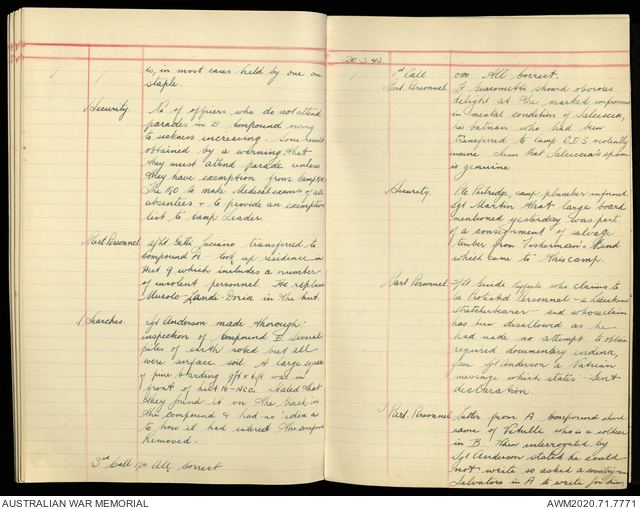 is, in most cases held by one on
staple.
Security. No of officers who do not attend
parades in B compound owing
to sickness increasing. Some result
obtained by a warning that
they must attend parade unless
they have exemption from Camp
The MO to make Medical exams of all
absentees & to provide an exemption
list to Camp Leader.
Part Personnel. S/Lt. Gatti Luciano transferred to
Compound A - took up residence in
Hut 9 which includes a number
of insolent personnel. He replaces
Murolo-Landi-Doria in the hut.
Searches. Sgt Anderson made thorough
inspection of compound B. Several
piles of earth noted but all
were surface soil. A large square
of pine boarding 9ft x 6ft was in
front of hut 16 - NCO. Stated that
they found it on the track in
the compound & had no idea as
to how it had entered the compound
Removed.
3rd Call 1700 All Correct
20.3.43.
1st Call 0700 All Correct.
Part Personnel Lt Giacometti showed obvious
delight at the marked improvement
in mental condition of
his batman who had been
transferred to Camp C.D.S recently
more claim that
is genuine
Security. Pte Partridge, camp plumber informed
Sgt Martin that large board
mentioned yesterday was part
of a consignment of salvage
timber from Fisherman's Bend
which came to this camp.
Part Personnel S/Lt. Guido who claims to
be Protected Personnel - a Lieutenant
Stretcherbearer - and whose claim
has been disallowed as he
had made no attempt to obtain
required documentary evidence,
Sgt Anderson a Vatican
message which states - Sent
declaration.
Part. Personnel Letter from A compound show
name of Vitulli who is a soldier
in B. When interrogated by
Sgt Anderson stated he could
not write so asked a countryman
Salvatore in A to write for him
AUSTRALIAN WAR MEMORIAL
AWM2020.71.7771